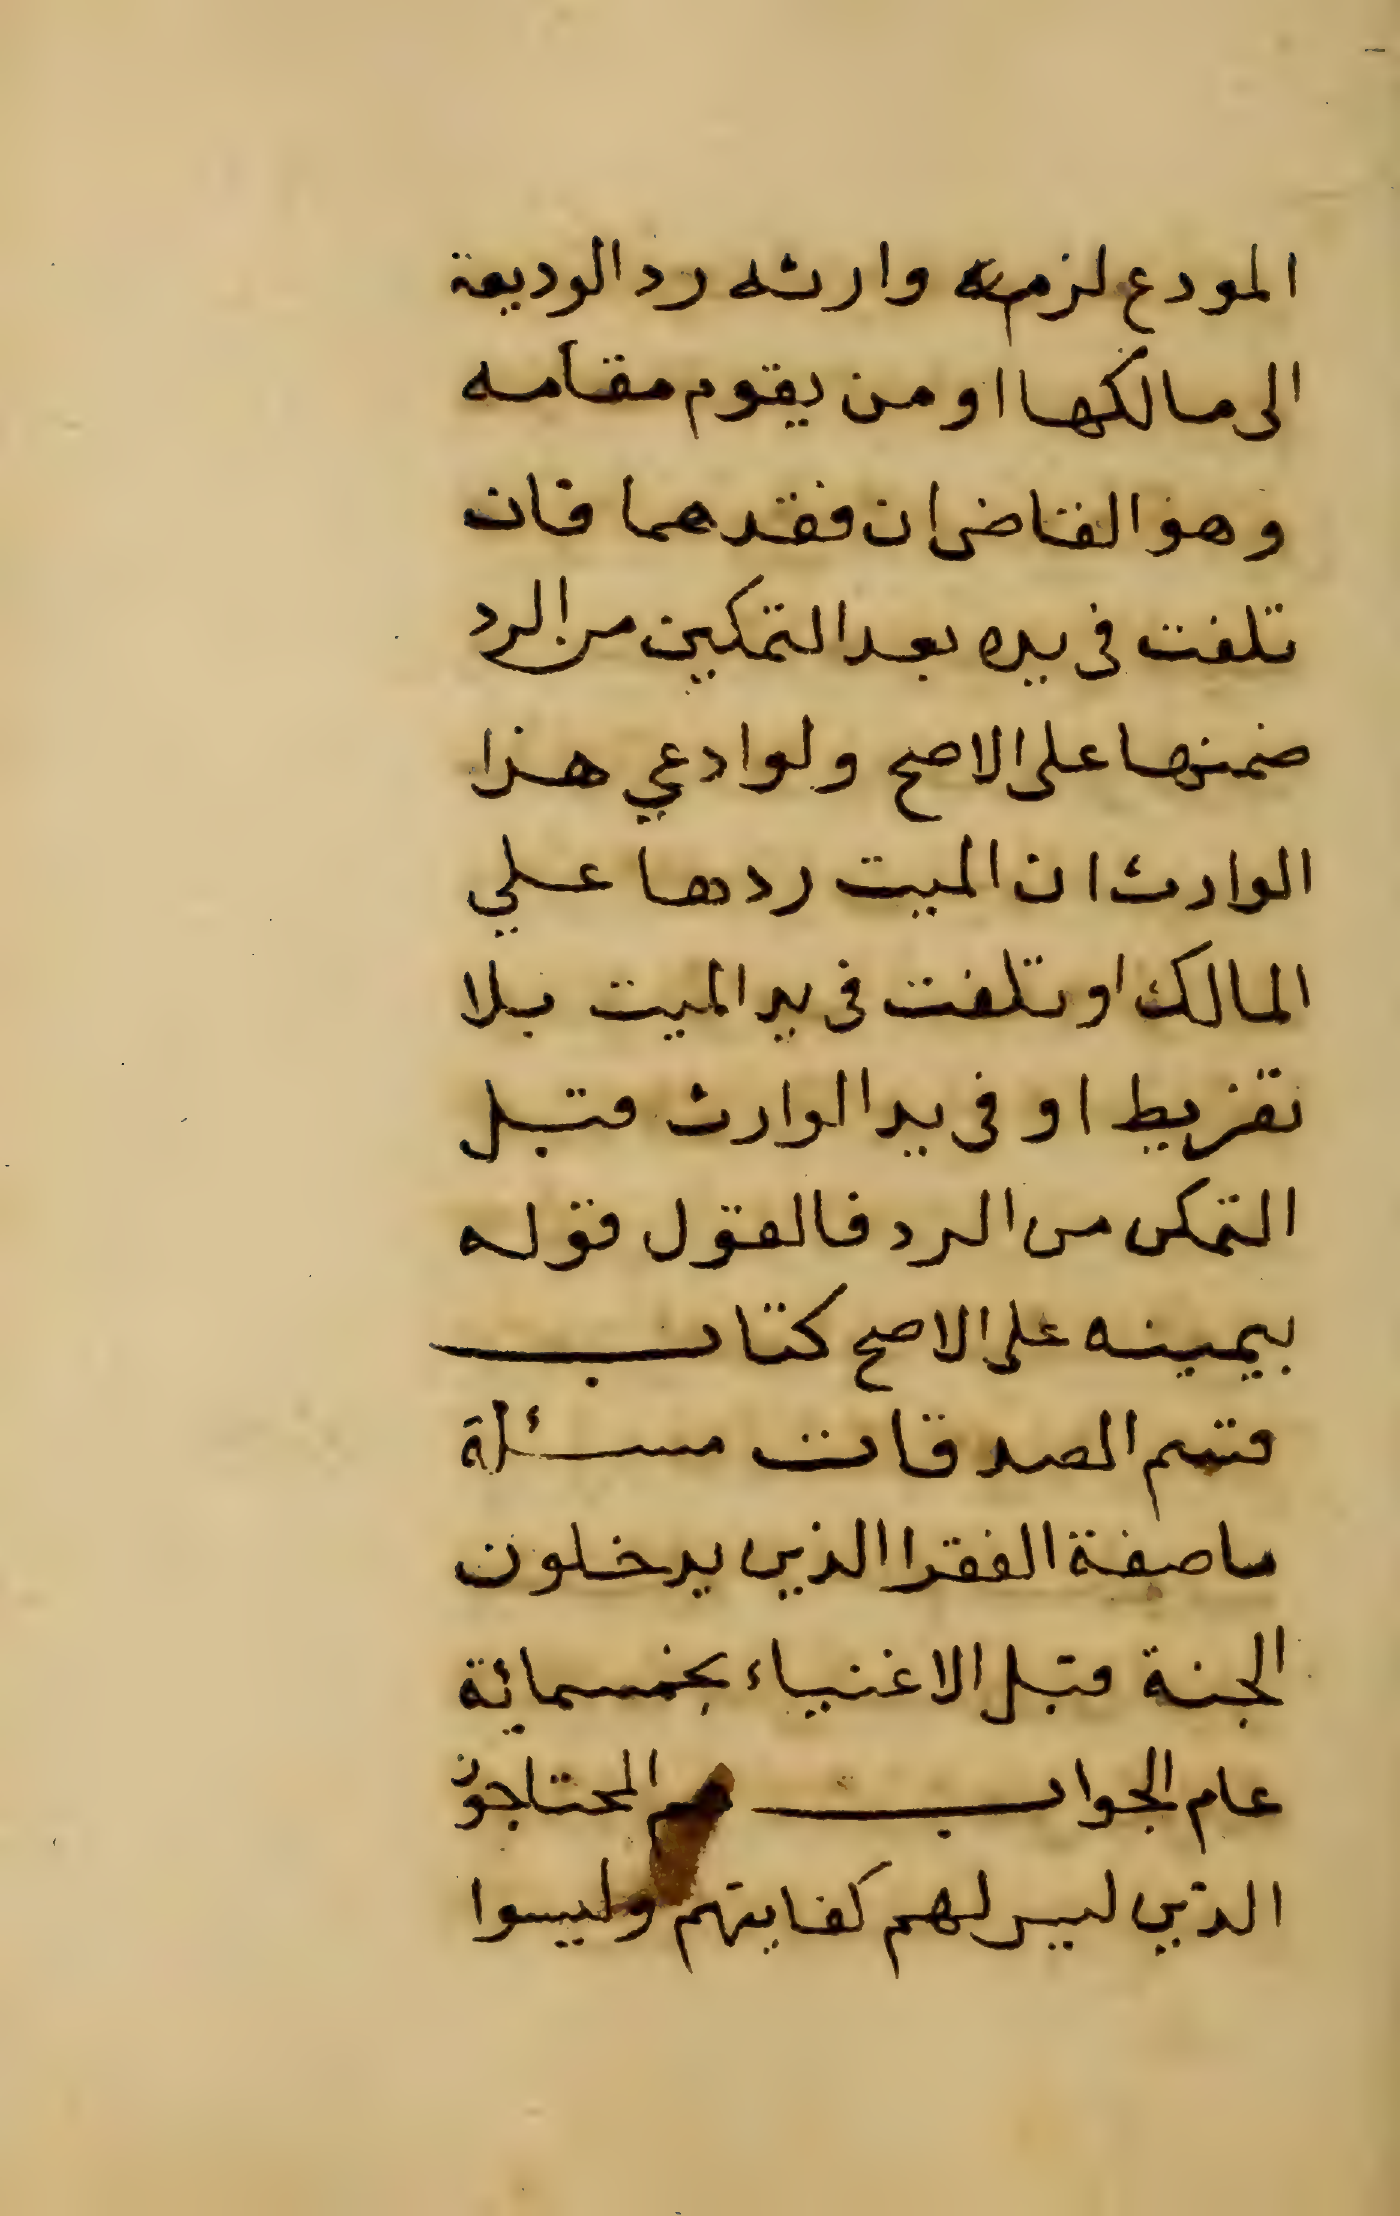 المودع لزم وارثه رد الوديعة
الى مالكها او من يقوم مقامه
وهو القاضى ان فقدهما فان
تلفت فى يده بعد التمكين من الرد
ضمنها على الاصح ولو ادعي هذا
الوارث ان الميت ردها علي
المالك او تلفت فى يد الميت بلا
تفريط او فى يد الوارث قبل
التمكن من الرد فالقول قوله
بيمينه على الاصح كتاب
قسم الصدقات مسئلة
ما صفة الفقرا الذين يدخلون
الجنة قبل الاغنياء بخمسمائة
عام الجواب هم المحتاجون
الذين ليس لهم كفايتهم وليسوا